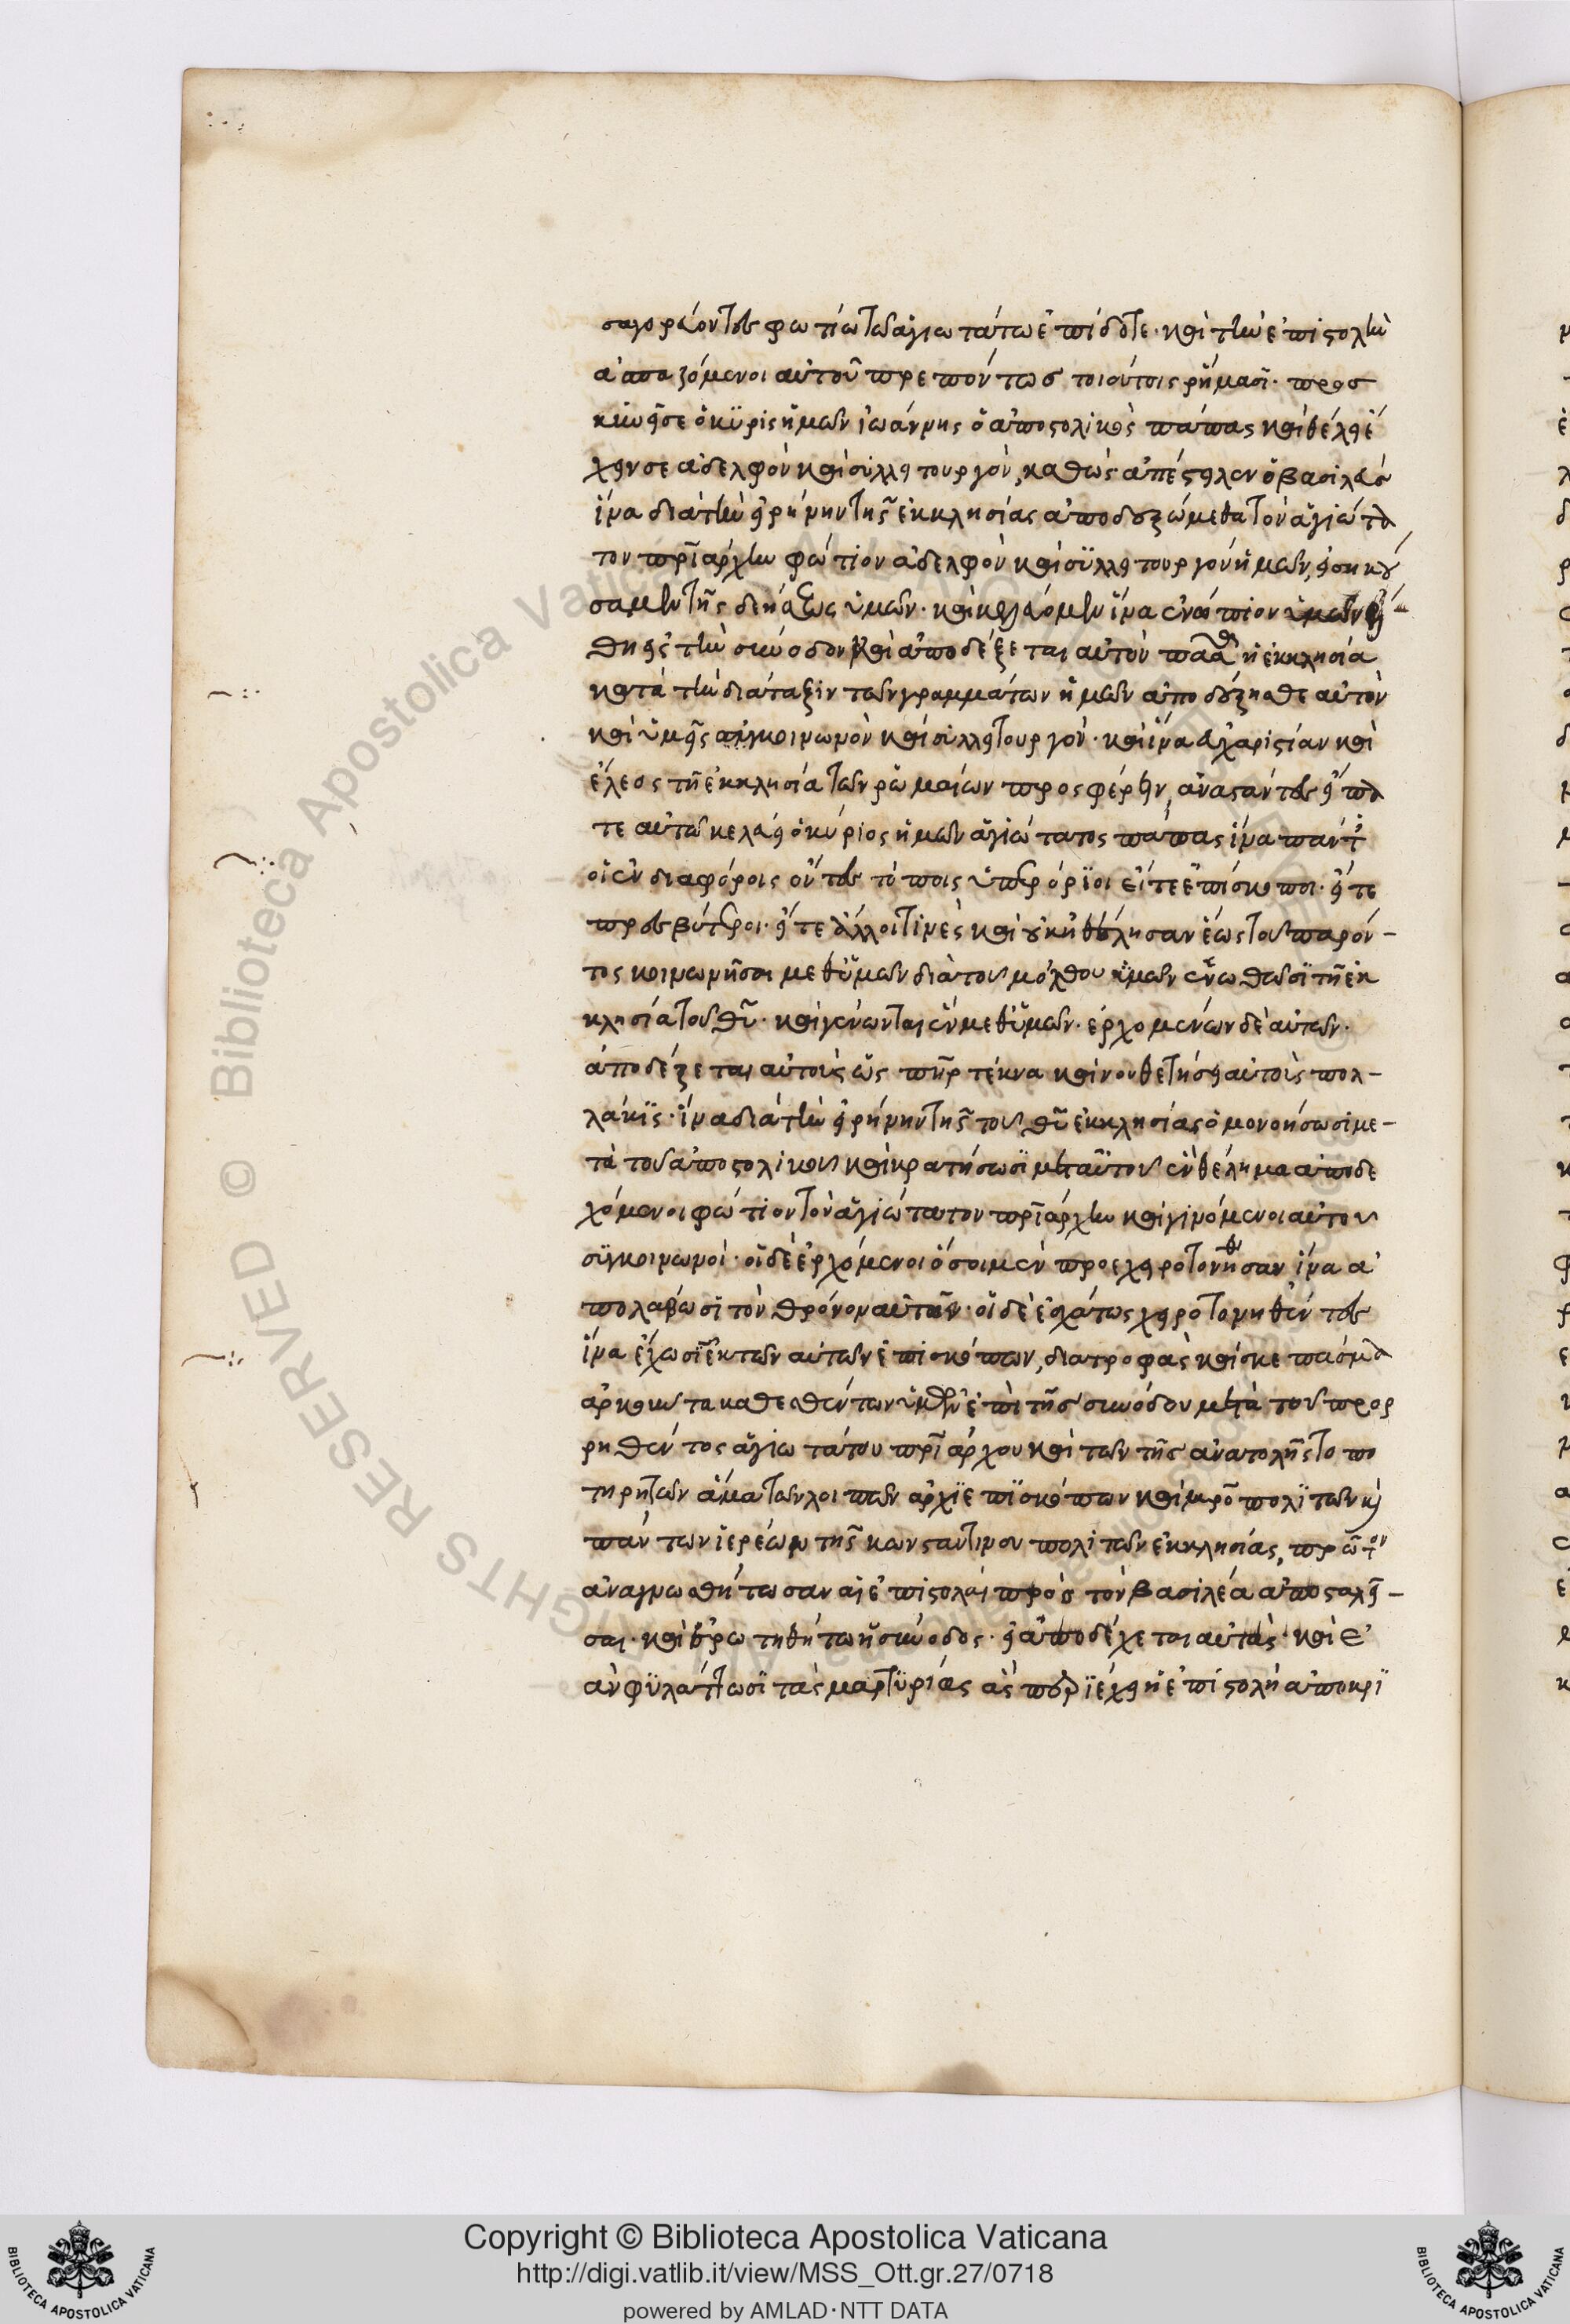 σαγορεύοντες φωτίω τῶ ἁγιωτάτω ἐπίδοτε· καὶ τὴν ἐπιστολὴν
ἀσπαζόμενοι αὐτοῦ πρεπόντως τοιούτοις ῥήμασι· προσ
κυνεῖ σε ὁ κύρις ἡμῶν ἰωάννης ὁ ἀποστολικὸς πάπας καὶ θέλει ἔ
χειν σε ἀδελφὸν καὶ συλλειτουργόν, καθὼς ἀπέστειλεν ὁ βασιλεὺς
ἵνα διὰ τὴν εἰρήνην τῆς ἐκκλησίας ἀποδεξώμεθα τὸν ἁγιώτα
τον πριάρχην φώτιον ἀδελφὸν καὶ συλλειτουργὸν ἡμῶν, εἰσηκού
σαμεν τῆς δεήσεως ὑμῶν· καὶ κελεύομεν ἵνα ἐνώπιον ὑμῶν
καὶ ἀποδέξεται αὐτὸν πᾶσα ἡ ἐκκλησία
κατὰ τὴν διάταξιν τῶν γραμμάτων ἡμῶν ἀποδέξησθε αὐτὸν
καὶ ὑμεῖς συγκοινωνὸν καὶ συλλειτουργόν· καὶ ἵνα εὐχαριστίαν καὶ
ἔλεος τῆ ἐκκλησία τῶν ῥωμαίων προσφέρειν, ἀναστάντες εἴπα
τε αὐτῶ κελεύει ὁ κύριος ἡμῶν ἁγιώτατος πάπας ἵνα πάντες
οἱ ἐν διαφόροις ὄντες τόποις ὑπερόριοι εἴτε ἐπίσκοποι· εἴτε
πρεσβύτεροι· εἴτε ἄλλοι τινὲς καὶ οὐκ ἠθέλησαν ἕως τοῦ παρόν-
τος κοινωνῆσαι μεθ ὑμῶν διὰ τοῦ μόχθου ὑμῶν ἑνωθῶσι τῆ ἐκ
κλησία τοῦ θυ· καὶ γένωνται ἓν μεθ ὑμῶν· ἐρχομένων δὲ αὐτῶν·
ἀποδέξεται αὐτοὺς ὡς πηρ τέκνα καὶ νουθετήσει αὐτοὺς πολ-
λάκις· ἵνα διὰ τὴν εἰρήνην τῆς τοῦ θυ ἐκκλησίας ὁμονοήσωσι με-
τὰ τοῦ ἀποστολικοῦ καὶ κρατήσωσι μετ αὐτοῦ ἓν θέλημα ἀποδε
χόμενοι φώτιον τὸν ἁγιώτατον πριάρχην καὶ γινόμενοι αὐτοῦ
συγκοινωνοί· οἱ δὲ ἐρχόμενοι ὅσοι μὲν προεχειροτονήθησαν ἵνα ἀ
πολάβωσι τὸν θρόνον αὐτῶν· οἱ δὲ ἐσχάτως χειροτονηθέντες
ἵνα ἔχωσι ἐκ τῶν αὐτῶν ἐπισκόπων, διατροφὰς καὶ σκεπάσματα
ἀρκοῦντα καθεσθέντων ὑμῶν ἐπὶ τῆς συνόδου μετὰ τοῦ προρ
ρηθέντος ἁγιωτάτου πριάρχου καὶ τῶν τῆς ἀνατολῆς τοπο
τηρητῶν ἅμα τῶν λοιπῶν ἀρχιεπισκόπων καὶ μροπολιτῶν καὶ
πάντων ἱερέων τῆς κωνσταντινουπολιτῶν ἐκκλησίας, πρῶτον
ἀναγνωσθήτωσαν αἱ ἐπιστολαὶ πρὸς τὸν βασιλέα ἀποσταλεῖ-
σαι· καὶ ἐρωτηθήτω ἡ σύνοδος· εἰ ἀποδέχεται αὐτάς· καὶ ἐ
ὰν φυλάττωσι τὰς μαρτυρίας ἃς περιέχει ἡ ἐπιστολὴ ἀποκρι
Copyright © Biblioteca Apostolica Vaticana
http://digi.vatlib.it/view/MSS_Ott.gr.27/0718
powered by AMLAD·NTT DATA